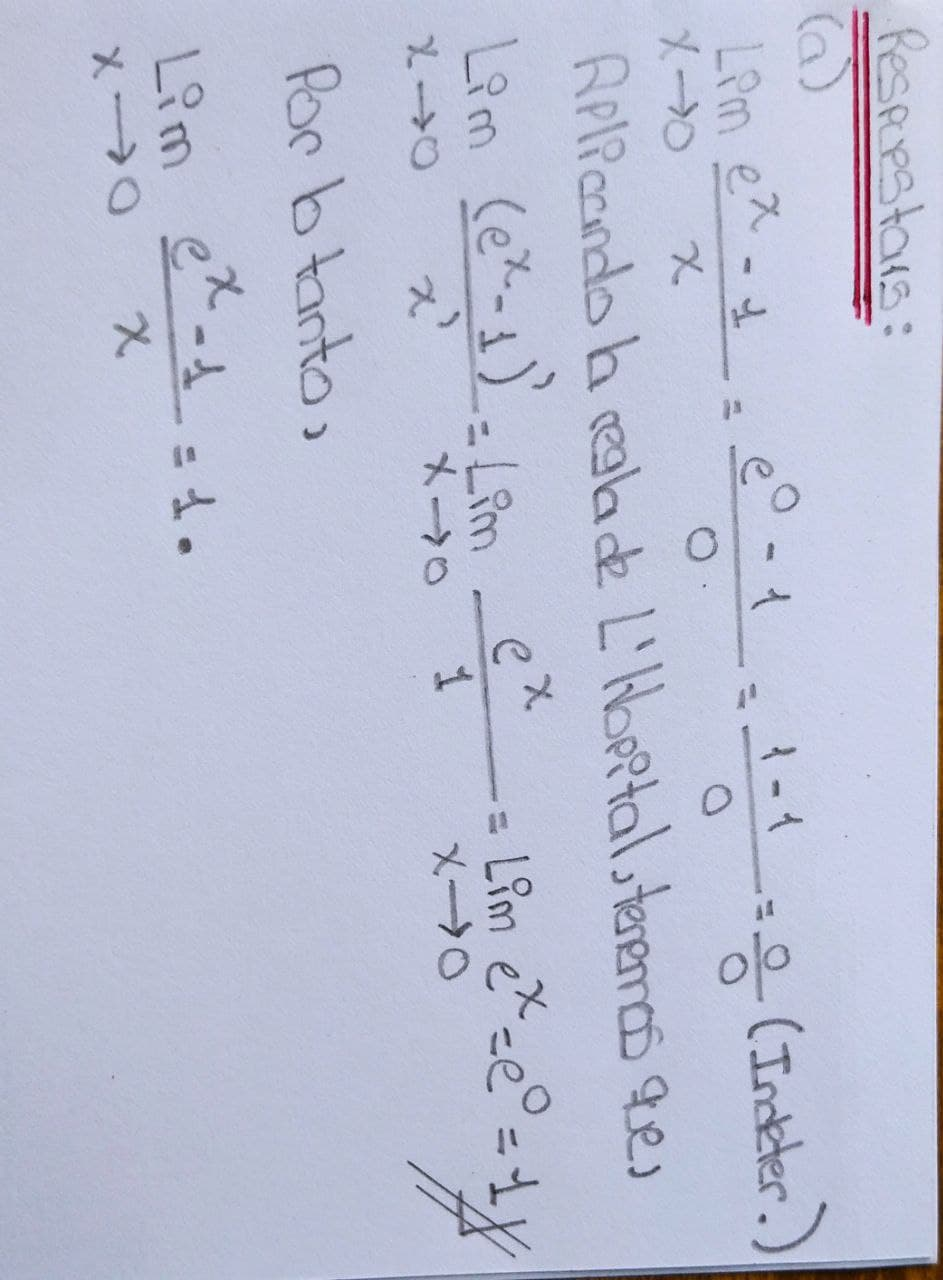 Respuestas:
(a)
Lim e^x - 1 / x = e^0 - 1 / 0 = 1 - 1 / 0 = 0 / 0 (Indeter.)
x→0
Aplicando la regla de L'Hopital, tenemos que,
Lim (e^x - 1)' / x' = Lim e^x / 1 = Lim e^x = e^0 = 1 //
x→0 x→0 x→0
Por lo tanto,
Lim e^x - 1 / x = 1.
x→0